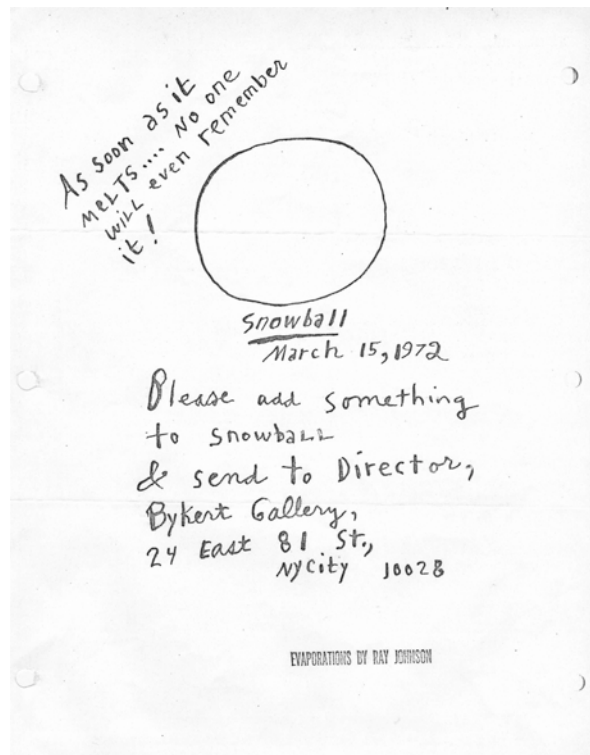 As soon as it
MELTS.... No one
will even remember
it!
Snowball
March 15, 1972
Please add something
to snowball
& send to Director,
Bykert Gallery,
24 East 81 St.,
NyCity 10028
EVAPORATIONS BY RAY JOHNSON